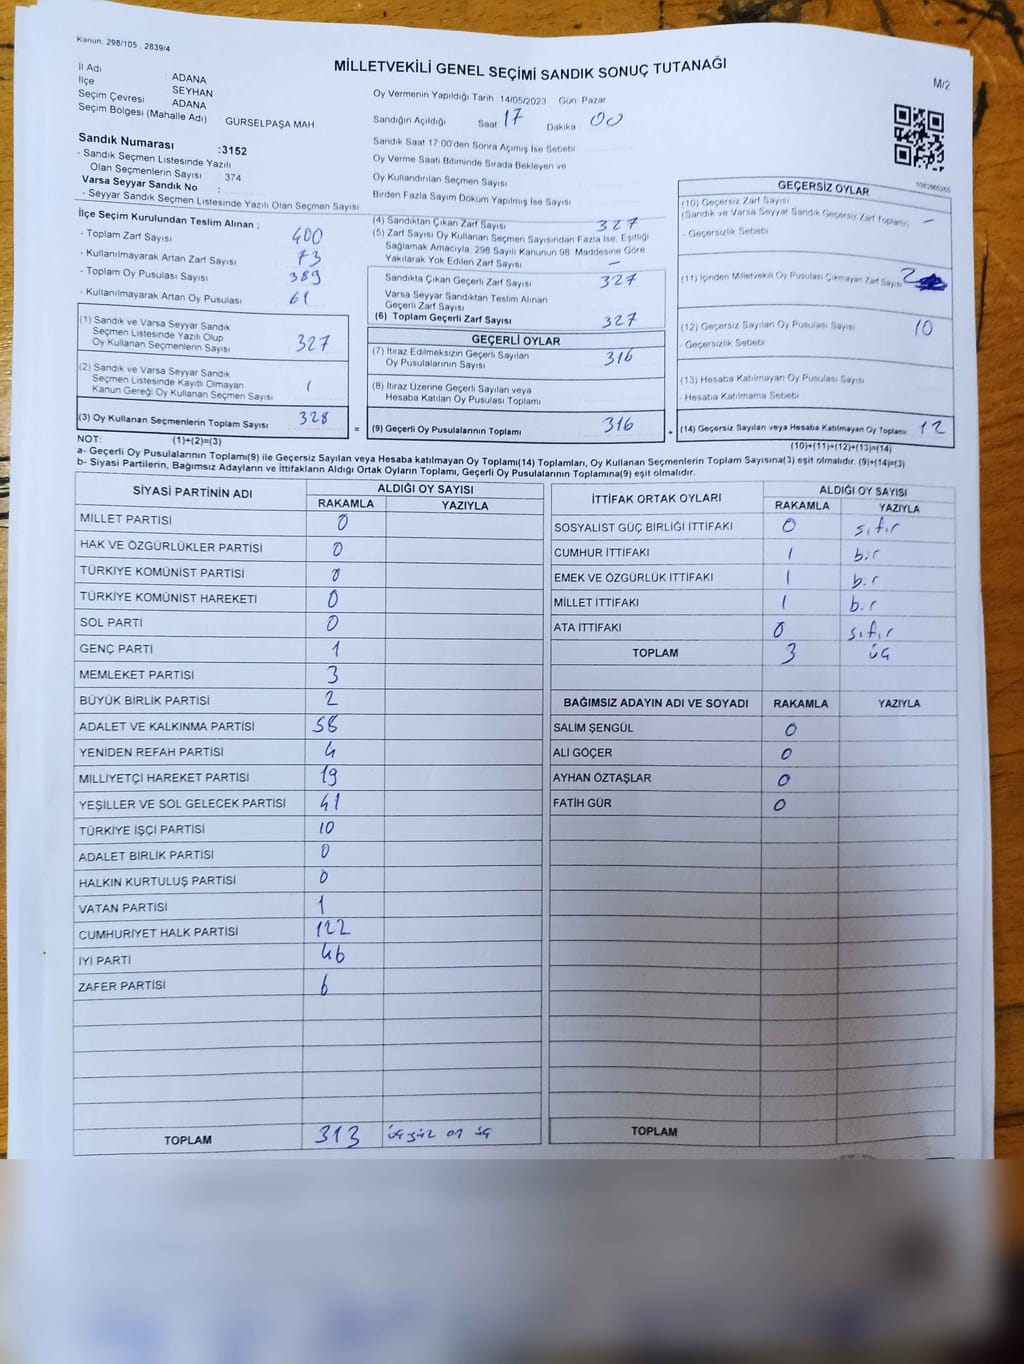 Kanun: 298/105 , 2839/4
MİLLETVEKİLİ GENEL SEÇİMİ SANDIK SONUÇ TUTANAĞI
M/2
İl Adı : ADANA
İlçe : SEYHAN
Seçim Çevresi : ADANA
Seçim Bölgesi (Mahalle Adı) : GÜRSELPAŞA MAH
Sandık Numarası :3152
- Sandık Seçmen Listesinde Yazılı
Olan Seçmenlerin Sayısı : 374
Varsa Seyyar Sandık No :
- Seyyar Sandık Seçmen Listesinde Yazılı Olan Seçmen Sayısı :
Oy Vermenin Yapıldığı Tarih : 14/05/2023 Gün : Pazar
Sandığın Açıldığı Saat 17 Dakika 00
Sandık Saat 17:00'den Sonra Açımış İse Sebebi
Oy Verme Saati Bitiminde Sırada Bekleyen ve
Oy Kullandırılan Seçmen Sayısı
Birden Fazla Sayım Döküm Yapılmış İse Sayısı
İlçe Seçim Kurulundan Teslim Alınan :
- Toplam Zarf Sayısı 400
- Kullanılmayarak Artan Zarf Sayısı 73
- Toplam Oy Pusulası Sayısı 389
- Kullanılmayarak Artan Oy Pusulası 61
(1) Sandık ve Varsa Seyyar Sandık
Seçmen Listesinde Yazılı Olup
Oy Kullanan Seçmenlerin Sayısı 327
(2) Sandık ve Varsa Seyyar Sandık
Seçmen Listesinde Kayıtlı Olmayan
Kanun Gereği Oy Kullanan Seçmen Sayısı 1
(3) Oy Kullanan Seçmenlerin Toplam Sayısı 328
(4) Sandıktan Çıkan Zarf Sayısı 327
(5) Zarf Sayısı Oy Kullanan Seçmen Sayısından Fazla İse, Eşitliği
Sağlamak Amacıyla, 298 Sayılı Kanunun 98. Maddesine Göre
Yakılarak Yok Edilen Zarf Sayısı -
Sandıkta Çıkan Geçerli Zarf Sayısı 327
Varsa Seyyar Sandıktan Teslim Alınan
Geçerli Zarf Sayısı
(6) Toplam Geçerli Zarf Sayısı 327
GEÇERLİ OYLAR
(7) İtiraz Edilmeksizin Geçerli Sayılan
Oy Pusulalarının Sayısı 316
(8) İtiraz Üzerine Geçerli Sayılan veya
Hesaba Katılan Oy Pusulası Toplamı
= (9) Geçerli Oy Pusulalarının Toplamı 316 +
GEÇERSİZ OYLAR
(10) Geçersiz Zarf Sayısı
(Sandık ve Varsa Seyyar Sandık Geçersiz Zarf Toplamı) -
- Geçersizlik Sebebi
(11) İçinden Milletvekili Oy Pusulası Çıkmayan Zarf Sayısı 2
(12) Geçersiz Sayılan Oy Pusulası Sayısı 10
- Geçersizlik Sebebi
(13) Hesaba Katılmayan Oy Pusulası Sayısı
- Hesaba Katılmama Sebebi
(14) Geçersiz Sayılan veya Hesaba Katılmayan Oy Toplamı 12
NOT: (1)+(2)=(3)
(10)+(11)+(12)+(13)=(14)
a- Geçerli Oy Pusulalarının Toplamı(9) ile Geçersiz Sayılan veya Hesaba katılmayan Oy Toplamı(14) Toplamları, Oy Kullanan Seçmenlerin Toplam Sayısına(3) eşit olmalıdır. (9)+(14)=(3)
b- Siyasi Partilerin, Bağımsız Adayların ve İttifakların Aldığı Ortak Oyların Toplamı, Geçerli Oy Pusulalarının Toplamına(9) eşit olmalıdır.
SİYASİ PARTİNİN ADI ALDIĞI OY SAYISI
RAKAMLA YAZIYLA
MİLLET PARTİSİ 0
HAK VE ÖZGÜRLÜKLER PARTİSİ 0
TÜRKİYE KOMÜNİST PARTİSİ 0
TÜRKİYE KOMÜNİST HAREKETİ 0
SOL PARTİ 0
GENÇ PARTİ 1
MEMLEKET PARTİSİ 3
BÜYÜK BİRLİK PARTİSİ 2
ADALET VE KALKINMA PARTİSİ 58
YENİDEN REFAH PARTİSİ 4
MİLLİYETÇİ HAREKET PARTİSİ 19
YEŞİLLER VE SOL GELECEK PARTİSİ 41
TÜRKİYE İŞÇİ PARTİSİ 10
ADALET BİRLİK PARTİSİ 0
HALKIN KURTULUŞ PARTİSİ 0
VATAN PARTİSİ 1
CUMHURİYET HALK PARTİSİ 122
İYİ PARTİ 46
ZAFER PARTİSİ 6
TOPLAM 313 üçyüz on üç
İTTİFAK ORTAK OYLARI ALDIĞI OY SAYISI
RAKAMLA YAZIYLA
SOSYALİST GÜÇ BİRLİĞİ İTTİFAKI 0 sıfır
CUMHUR İTTİFAKI 1 bir
EMEK VE ÖZGÜRLÜK İTTİFAKI 1 bir
MİLLET İTTİFAKI 1 bir
ATA İTTİFAKI 0 sıfır
TOPLAM 3 üç
BAĞIMSIZ ADAYIN ADI VE SOYADI RAKAMLA YAZIYLA
SALİM ŞENGÜL 0
ALİ GÖÇER 0
AYHAN ÖZTAŞLAR 0
FATİH GÜR 0
TOPLAM